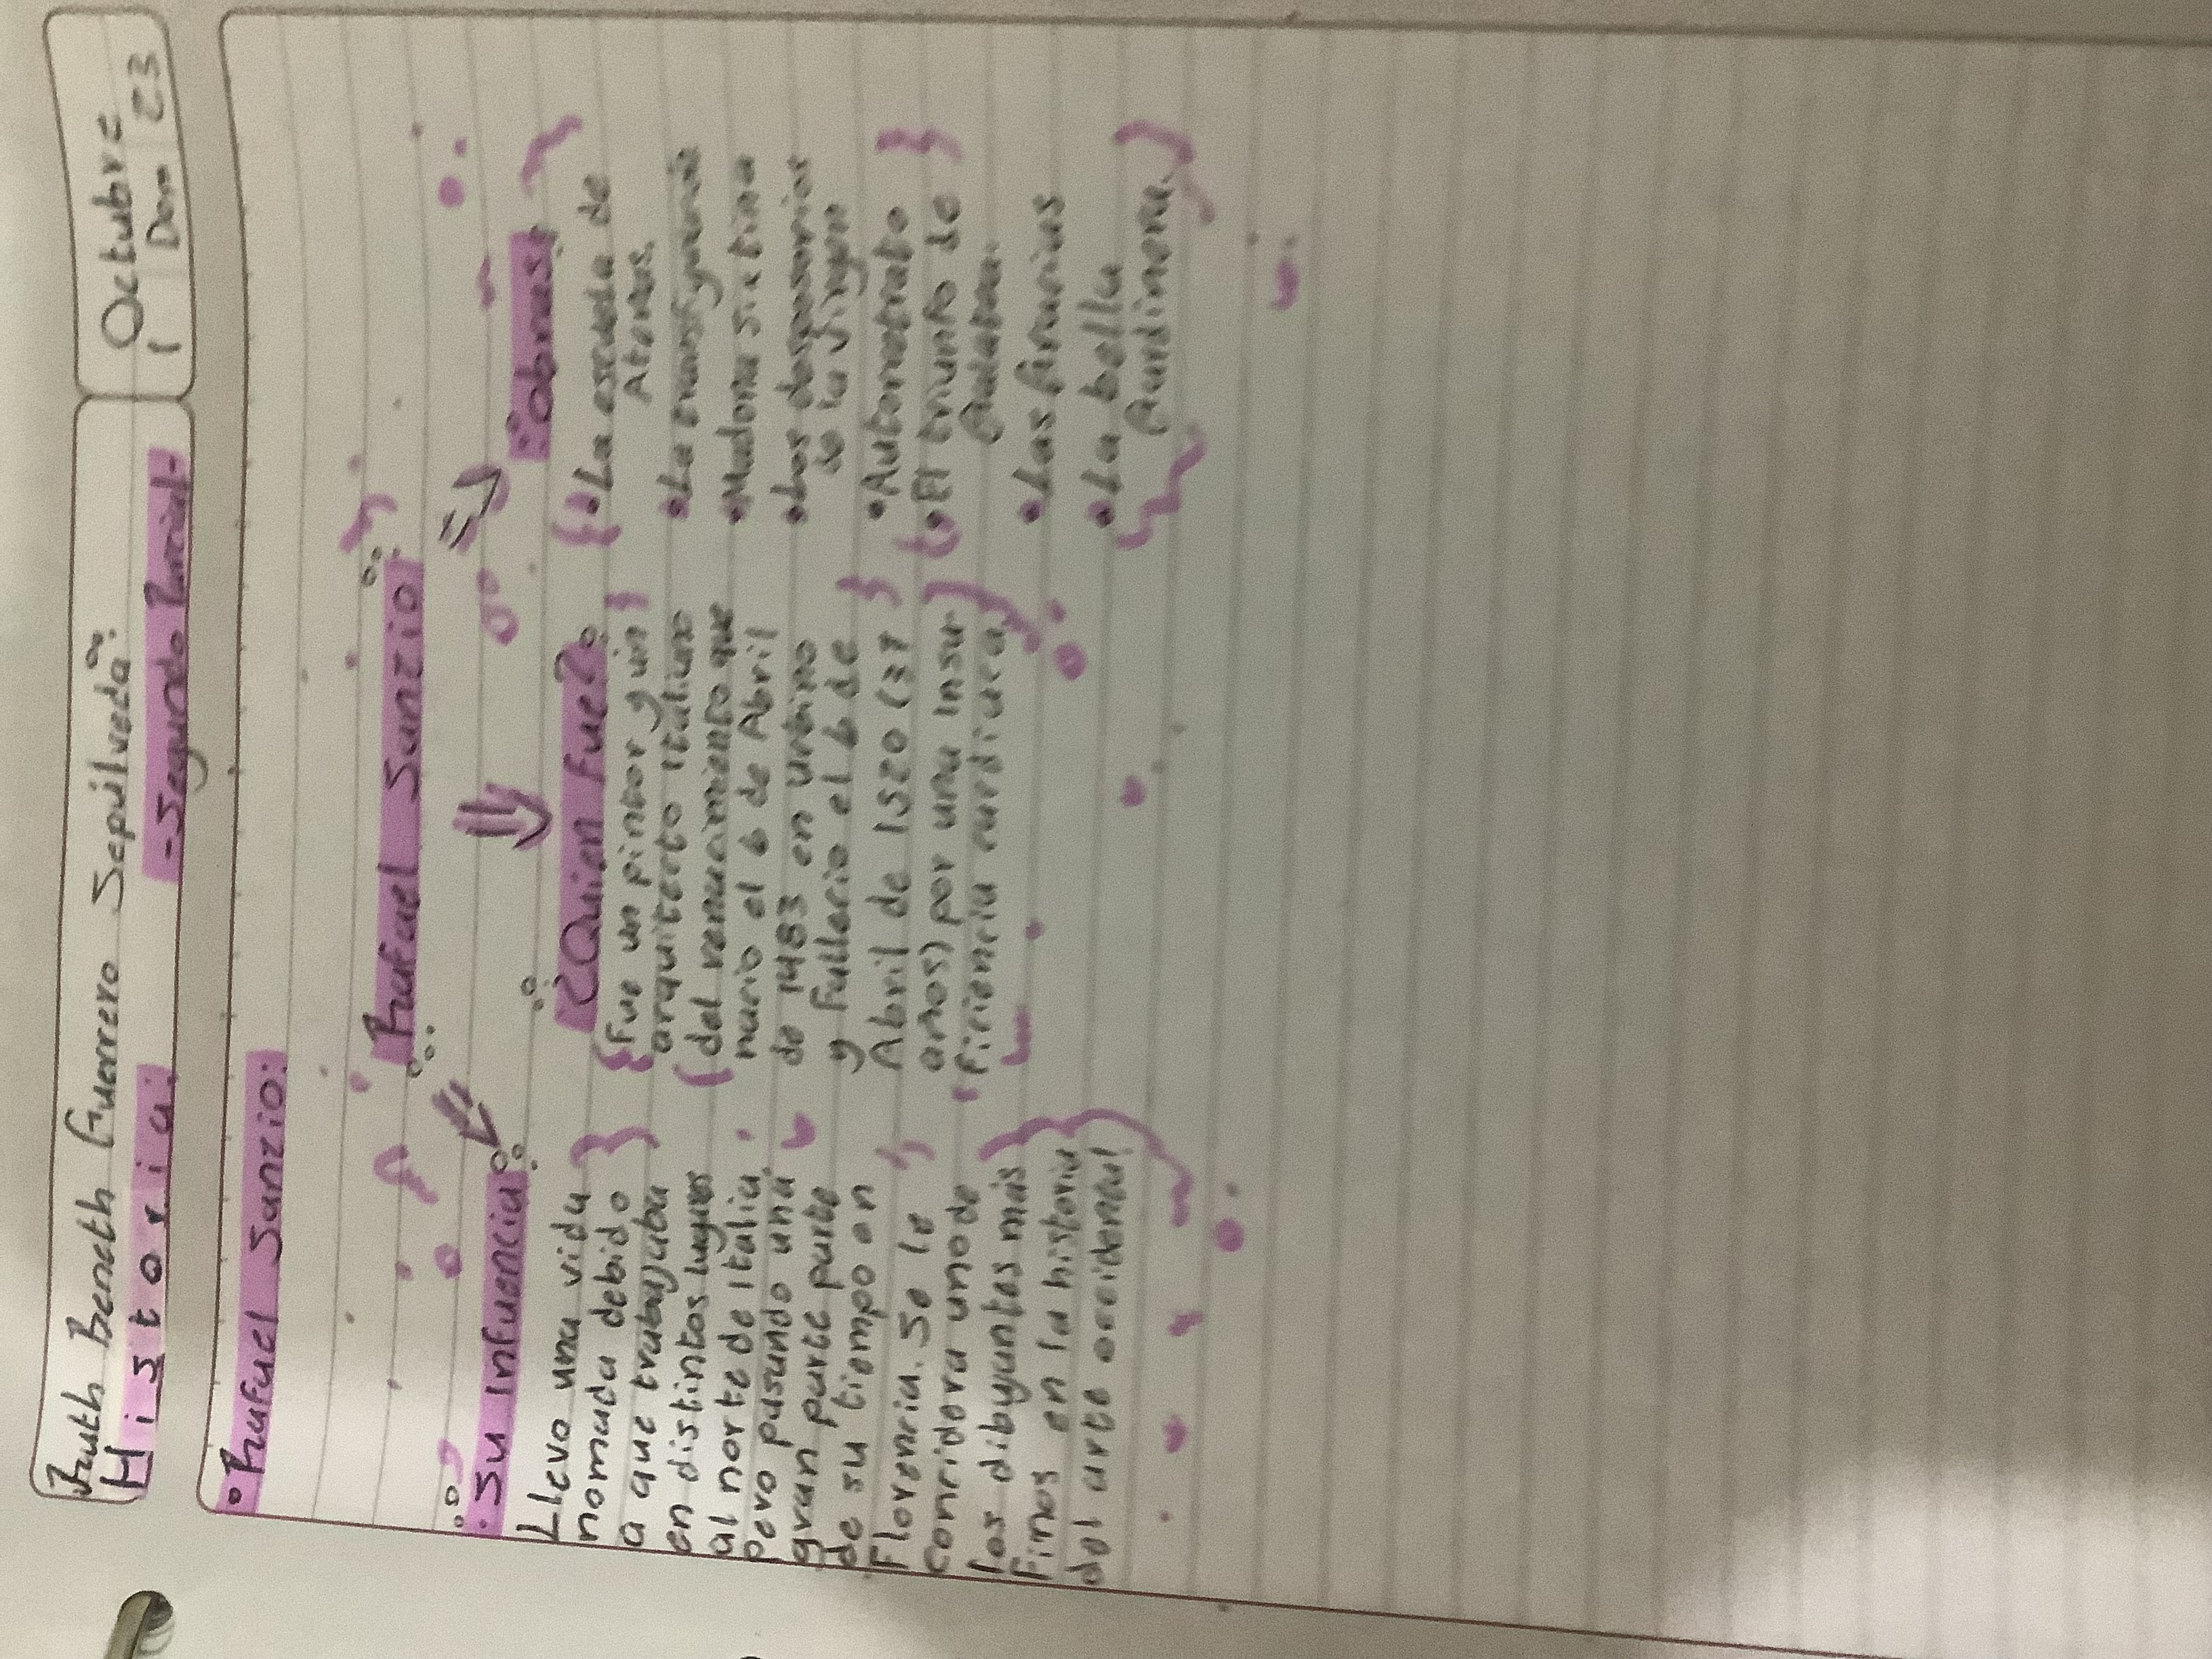 Ruth Beneth Guerrero Sepulveda
Octubre
Historia.
-Segundo Parcial-
1 Dom 23
• Rafael Sanzio:
Rafael Sanzio
• Su Infuencia:
Llevo una vida
nomada debido
a que trabajaba
en distintos lugares
al norte de Italia,
pero pasando una
gran parte parte
de su tiempo en
Florencia. Se le
considera uno de
los dibujantes más
finos en la historia
del arte occidental
¿Quien Fue?
Fue un pintor y un
arquitecto Italiano
del renacimiento que
nacio el 6 de Abril
de 1483 en urbino
y Fallecio el 6 de
Abril de 1520 (37
años) por una Insu-
ficiencia cardiaca.
Obras:
• La escuela de
Atenas.
• La transfiguración
• Madona sixtina
• Los desposorios
de la virgen
• Autorretrato
• El triunfo de
Galatea.
• Las
• La bella
Jardinera.